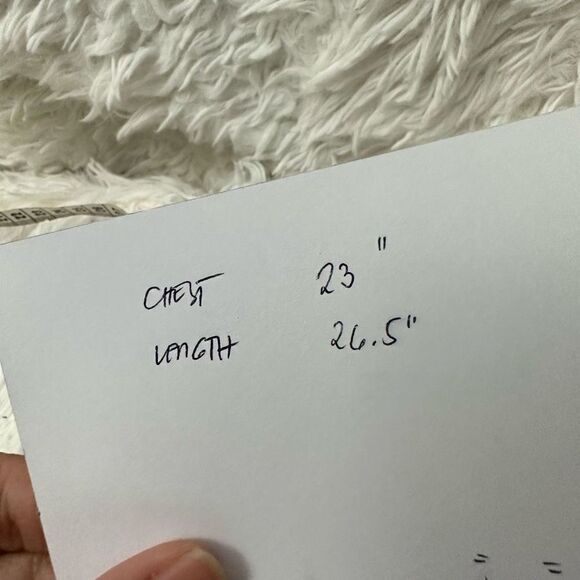 CHEST 23"
LENGTH 26.5"